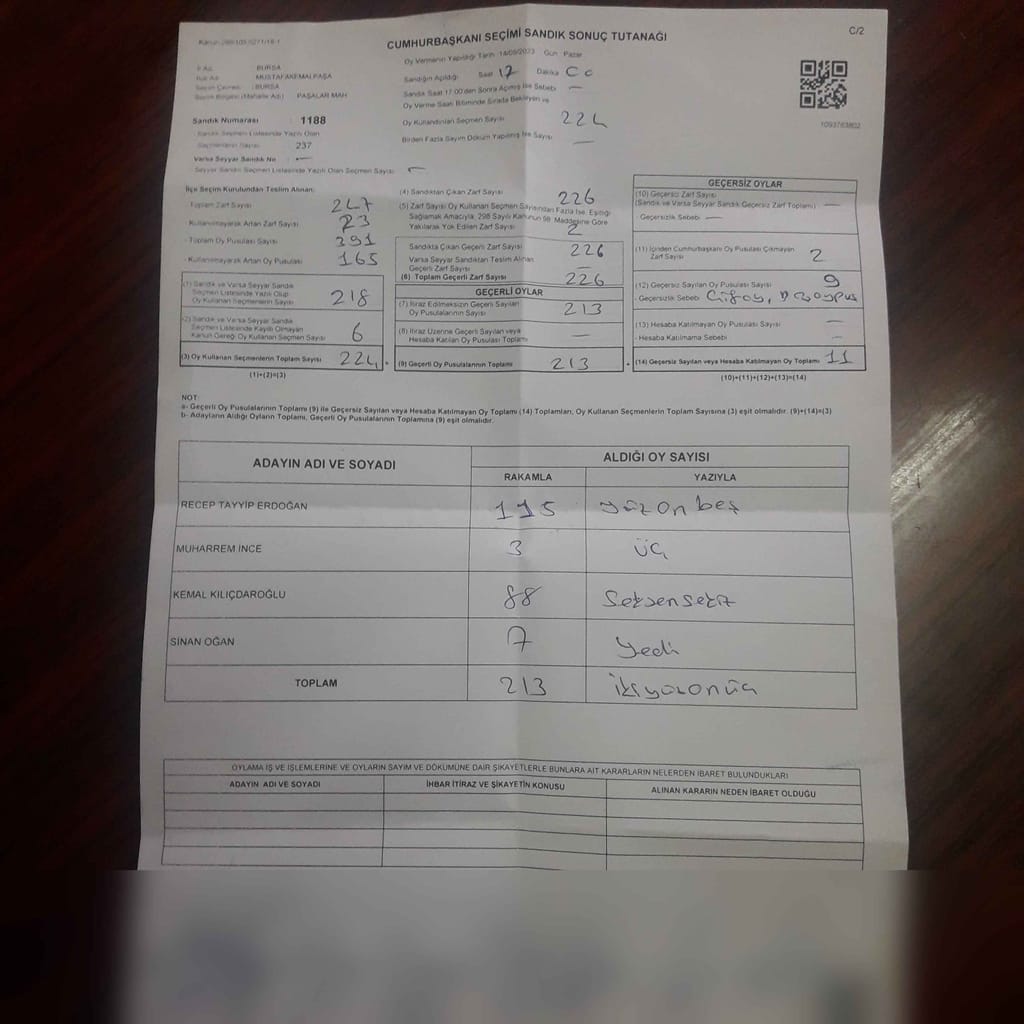 C/2
CUMHURBAŞKANI SEÇİMİ SANDIK SONUÇ TUTANAĞI
İl Adı : BURSA
İlçe Adı : MUSTAFAKEMALPAŞA
Seçim Çevresi : BURSA
Seçim Bölgesi (Mahalle Adı) : PAŞALAR MAH
Sandık Numarası : 1188
Sandık Seçmen Listesinde Yazılı Olan
Seçmenlerin Sayısı : 237
Varsa Seyyar Sandık No : —
Seyyar Sandık Seçmen Listesinde Yazılı Olan Seçmen Sayısı : —
Oy Vermenin Yapıldığı Tarih 14/05/2023 Gün Pazar
Sandığın Açıldığı Saat 17 Dakika 00
Sandık Saat 17:00'den Sonra Açılmış İse Sebebi —
Oy Verme Saati Bitiminde Sırada Bekleyen ve
Oy Kullandırılan Seçmen Sayısı 224
Birden Fazla Sayım Döküm Yapılmış İse Sayısı —
1093763802
İlçe Seçim Kurulundan Teslim Alınan:
Toplam Zarf Sayısı 247
Kullanılmayarak Artan Zarf Sayısı 23
- Toplam Oy Pusulası Sayısı 391
- Kullanılmayarak Artan Oy Pusulası 165
(1) Sandık ve Varsa Seyyar Sandık
Seçmen Listesinde Yazılı Olup
Oy Kullanan Seçmenlerin Sayısı 218
(2) Sandık ve Varsa Seyyar Sandık
Seçmen Listesinde Kayıtlı Olmayan
Kanun Gereği Oy Kullanan Seçmen Sayısı 6
(3) Oy Kullanan Seçmenlerin Toplam Sayısı 224
(1)+(2)=(3)
(4) Sandıktan Çıkan Zarf Sayısı 226
(5) Zarf Sayısı Oy Kullanan Seçmen Sayısından Fazla İse, Eşitliği
Sağlamak Amacıyla, 298 Sayılı Kanunun 98. Maddesine Göre
Yakılarak Yok Edilen Zarf Sayısı 2
Sandıkta Çıkan Geçerli Zarf Sayısı 226
Varsa Seyyar Sandıktan Teslim Alınan
Geçerli Zarf Sayısı —
(6) Toplam Geçerli Zarf Sayısı 226
GEÇERLİ OYLAR
(7) İtiraz Edilmeksizin Geçerli Sayılan
Oy Pusulalarının Sayısı 213
(8) İtiraz Üzerine Geçerli Sayılan veya
Hesaba Katılan Oy Pusulası Toplamı —
(9) Geçerli Oy Pusulalarının Toplamı 213
GEÇERSİZ OYLAR
(10) Geçersiz Zarf Sayısı
(Sandık ve Varsa Seyyar Sandık Geçersiz Zarf Toplamı) —
Geçersizlik Sebebi —
(11) İçinden Cumhurbaşkanı Oy Pusulası Çıkmayan
Zarf Sayısı 2
(12) Geçersiz Sayılan Oy Pusulası Sayısı 9
- Geçersizlik Sebebi
(13) Hesaba Katılmayan Oy Pusulası Sayısı —
- Hesaba Katılmama Sebebi —
(14) Geçersiz Sayılan veya Hesaba Katılmayan Oy Toplamı 11
(10)+(11)+(12)+(13)=(14)
NOT:
a- Geçerli Oy Pusulalarının Toplamı (9) ile Geçersiz Sayılan veya Hesaba Katılmayan Oy Toplamı (14) Toplamları, Oy Kullanan Seçmenlerin Toplam Sayısına (3) eşit olmalıdır. (9)+(14)=(3)
b- Adayların Aldığı Oyların Toplamı, Geçerli Oy Pusulalarının Toplamına (9) eşit olmalıdır.
ADAYIN ADI VE SOYADI ALDIĞI OY SAYISI
RAKAMLA YAZIYLA
RECEP TAYYİP ERDOĞAN 115 yüzonbeş
MUHARREM İNCE 3 üç
KEMAL KILIÇDAROĞLU 88 Seksensekiz
SİNAN OĞAN 7 Yedi
TOPLAM 213 İkiyüzonüç
OYLAMA İŞ VE İŞLEMLERİNE VE OYLARIN SAYIM VE DÖKÜMÜNE DAİR ŞİKAYETLERLE BUNLARA AİT KARARLARIN NELERDEN İBARET BULUNDUKLARI
ADAYIN ADI VE SOYADI İHBAR İTİRAZ VE ŞİKAYETİN KONUSU ALINAN KARARIN NEDEN İBARET OLDUĞU